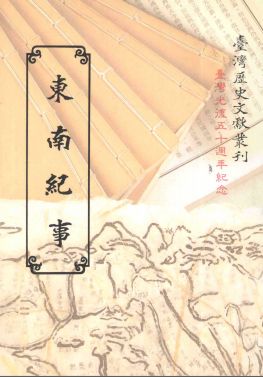 臺灣歷史文獻叢刊
臺灣光復五十週年紀念
東南紀事